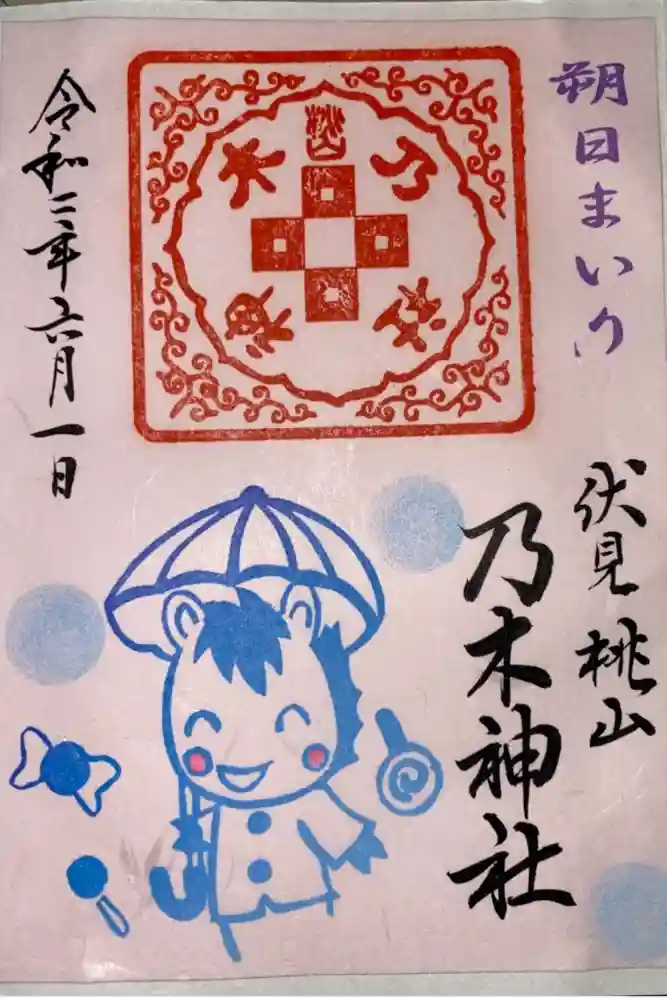 朔日まいり
伏見 桃山
乃木神社
桃山
乃木
神社
令和二年六月一日